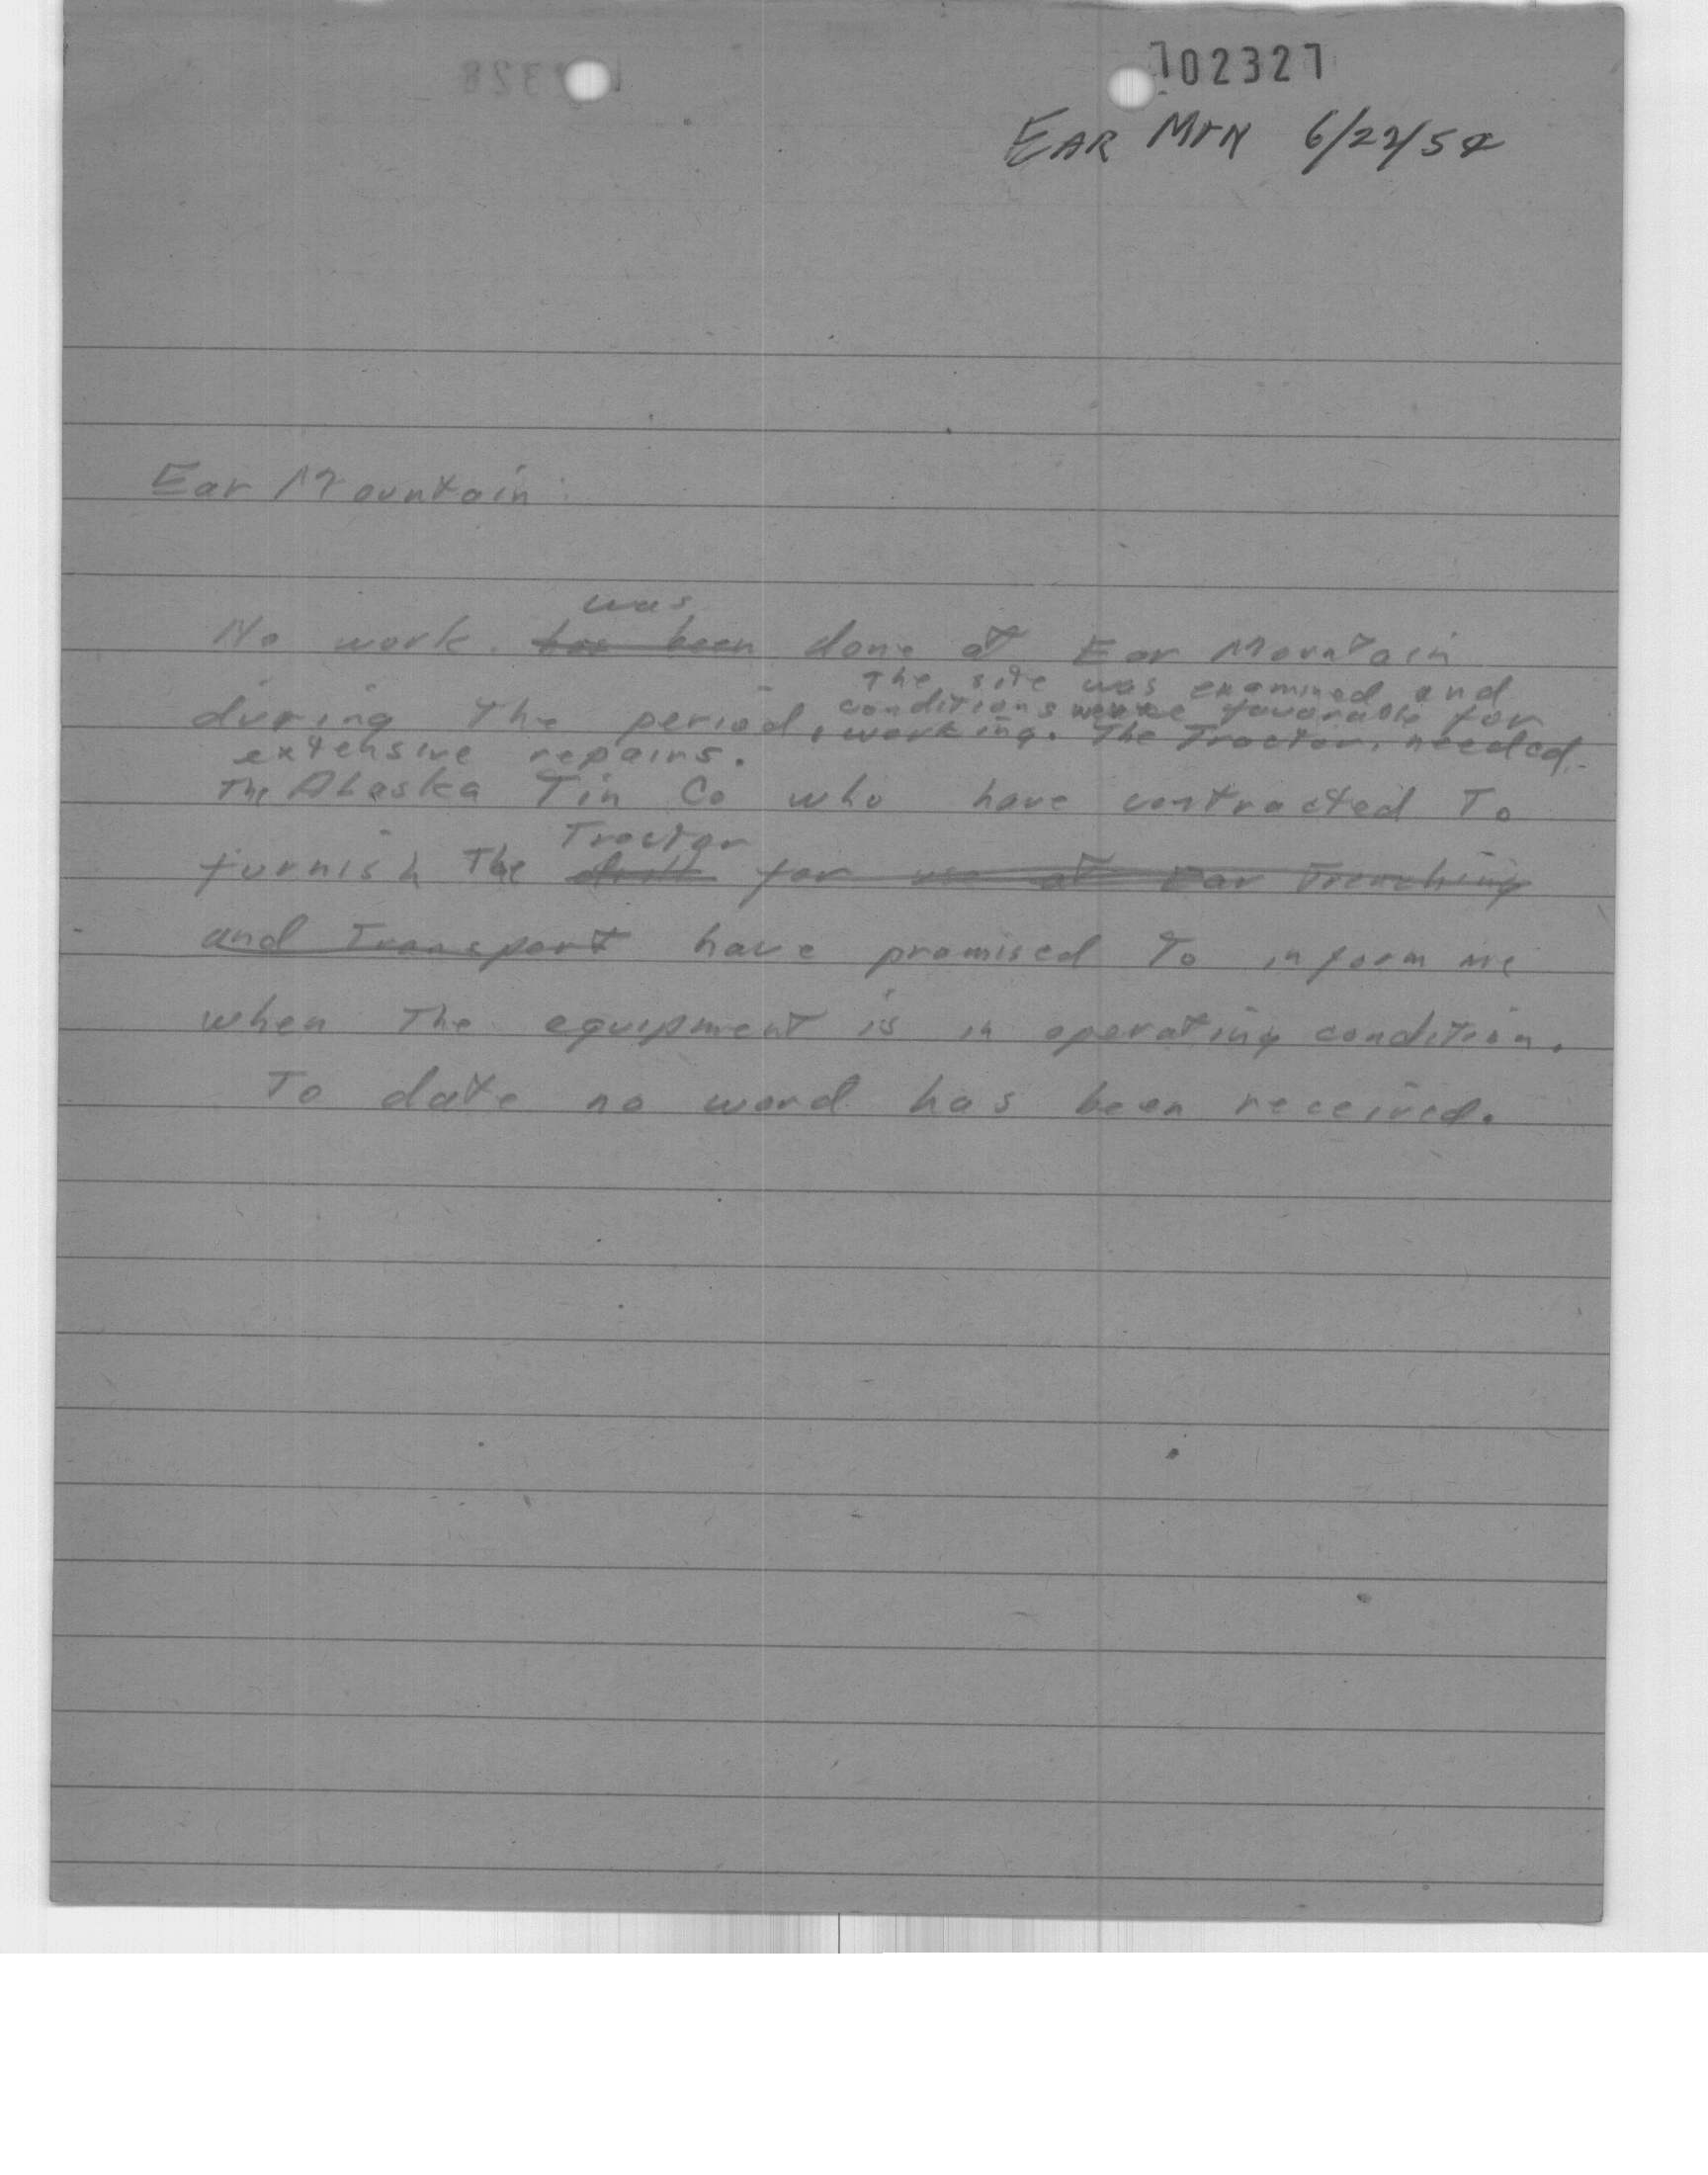 102327
EAR MTN 6/22/54
Ear Mountain:
was
No work has been done at Ear Mountain
The site was examined and
conditions were favorable for
during The period, working. The Tractor needed
extensive repairs.
The Alaska Tin Co who have contracted To
Tractor
furnish The drill for use at Ear Trenching
and Transport have promised To inform me
when The equipment is in operating condition.
To date no word has been received.